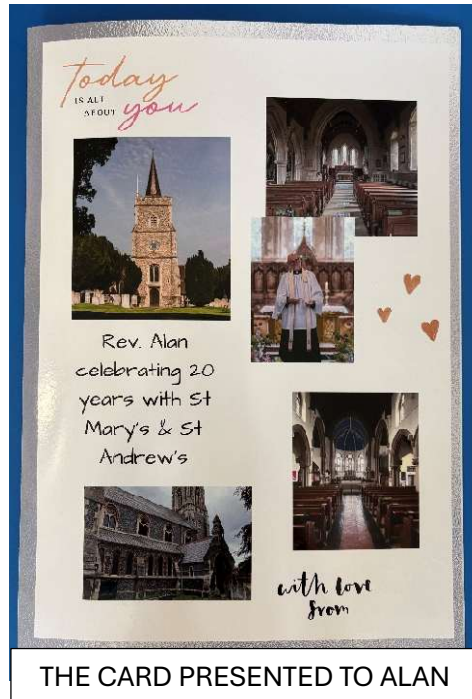 today
IS ALL
ABOUT you
Rev. Alan
celebrating 20
years with St
Mary's & St
Andrew's
with love
from
THE CARD PRESENTED TO ALAN